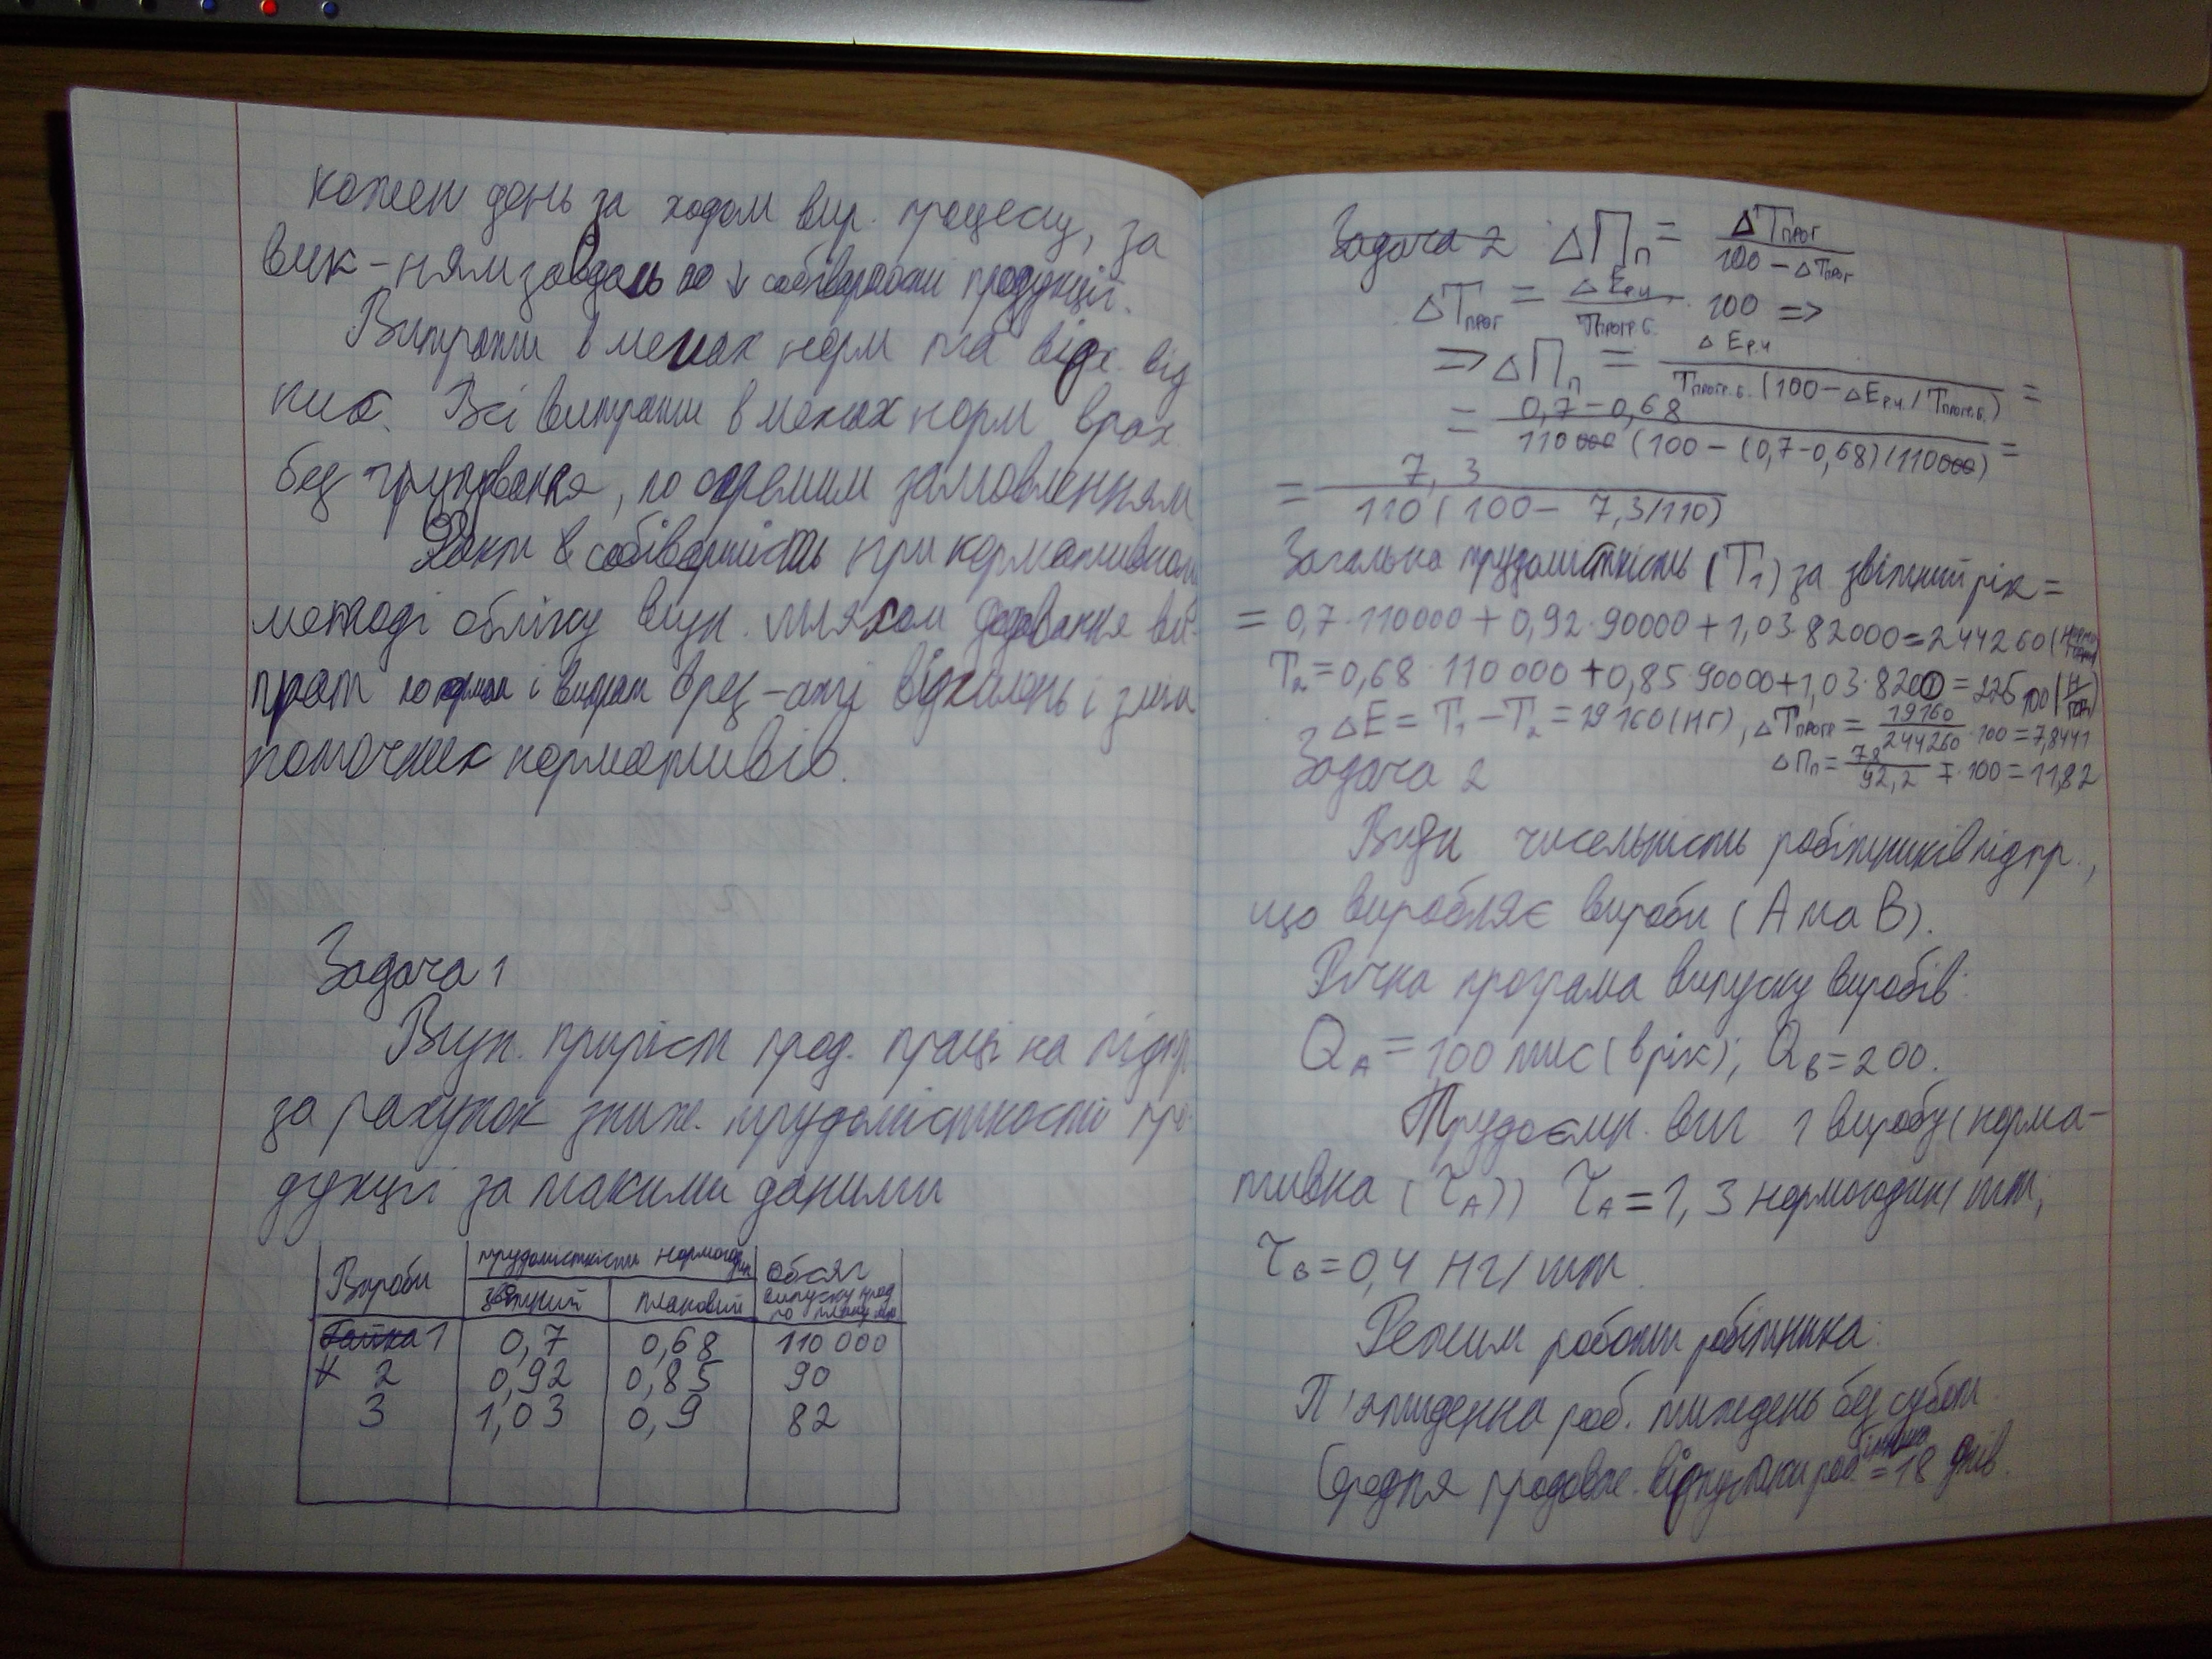 кожен день за ходом вир. процесу, за
вик-ням завдань по ↓ собівартості продукції.
Витрати в межах норм та відх. від
них. Всі витрати в межах норм врах
без групування, по окремим замовленням
Факт в собівартість при нормативном
методі обліку визн. шляхом додавання ви-
трат по нормам і витрат в рез-аті відхилень і змін
поточних нормативів.
Задача 1
Визн. приріст прод. праці на підпр
за рахунок зниж. трудомісткості про
дукції за такими даними
Вироби | трудомісткість нормогодин | обсяг випуску прод по плану шт
звітний | плановий
Гайка 1 | 0,7 | 0,68 | 110 000
2 | 0,92 | 0,85 | 90
3 | 1,03 | 0,9 | 82
Задача 2 ΔПп = ΔТпрог / 100 - ΔТпрог
ΔТпрог = ΔЕр.ч / Тпрогр.б. · 100 =>
=> ΔПп = ΔЕр.ч / Тпрогр.б. (100 - ΔЕр.ч / Тпрогр.б.) =
= 0,7 - 0,68 / 110 000 (100 - (0,7 - 0,68) / 110 000) =
= 7,3 / 110 (100 - 7,3/110)
Загальна трудомісткість (Т1) за звітний рік =
= 0,7·110000 + 0,92·90000 + 1,03·82000 = 244260
Т2 = 0,68·110 000 + 0,85·90000 + 1,03·8200 = 225 100
ΔЕ = Т1 - Т2 = 19160 (НГ), ΔТпрогр = 19160 / 244260 · 100 = 7,8441
Задача 2 ΔПп = 78 / 92,2 · 100 = 11,82
Види чисельність робітників підпр.,
що виробляє вироби (А та В).
Річна програма випуску виробів:
QА = 100 тис (в рік); QВ = 200.
Трудоємн. виг 1 виробу (норма-
тивна (τА)) τА = 1,3 нормогодин/шт;
τВ = 0,4 НГ/шт.
Режим роботи робітника:
П'ятиденна роб. тиждень без субот
Середня продовж. відпустки робітника = 18 днів.